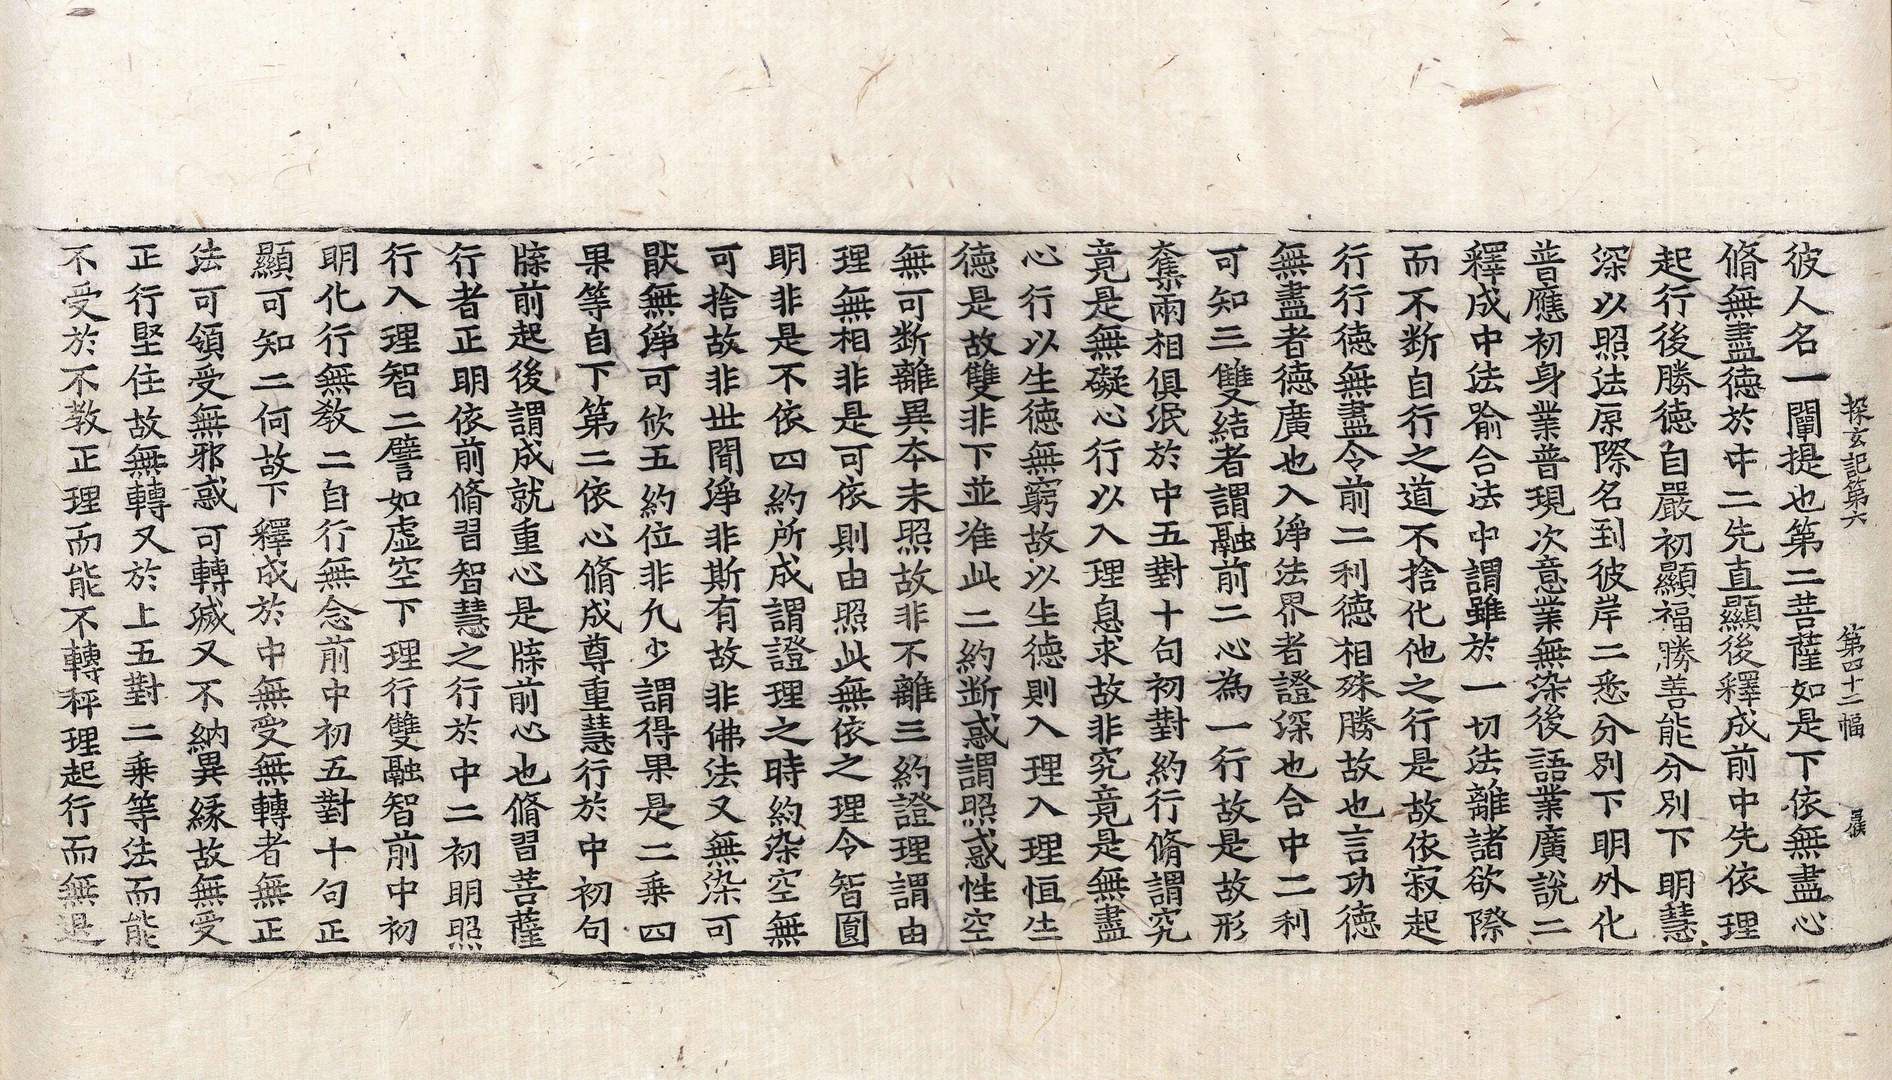 探玄記第六　第四十二幅
彼人名一闡提也第二菩薩如是下依無盡心
脩無盡德於中二先直顯後釋成前中先依理
起行後勝德自嚴初顯福勝善能分別下明慧
深以照法原際名到彼岸二悉分別下明外化
普應初身業普現次意業無染後語業廣說二
釋成中法喻合法中謂雖於一切法離諸欲際
而不断自行之道不捨化他之行是故依寂起
行行德無盡令前二利德相殊勝故也言功德
無盡者德廣也入淨法界者證深也合中二利
可知三雙結者謂融前二心為一行故是故形
奪兩相俱泯於中五對十句初對約行脩謂究
竟是無礙心行以入理息求故非究竟是無盡
心行以生德無窮故以生德則入理入理恒生
德是故雙非下並准此二約断惑謂照惑性空
無可断離異夲未照故非不離三約證理謂由
理無相非是可依則由照此無依之理令智圓
明非是不依四約所成謂證理之時約染空無
可捨故非世間淨非斯有故非佛法又無染可
猒無淨可欣五約位非凡少謂得果是二乗四
果等自下第二依心脩成尊重慧行於中初句
牒前起後謂成就重心是牒前心也脩習菩薩
行者正明依前脩習智慧之行於中二初明照
行入理智二譬如虛空下理行雙融智前中初
明化行無教二自行無念前中初五對十句正
顯可知二何故下釋成於中無受無轉者無正
法可領受無邪惑可轉滅又不納異緣故無受
正行堅住故無轉又於上五對二乗等法而能
不受於不教正理而能不轉秤理起行而無退